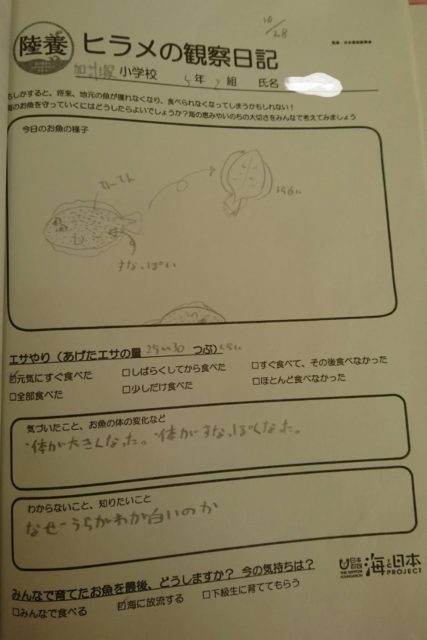 10/28
陸養 ヒラメの観察日記
小学校 5年 2組 氏名
もしかすると、将来、地元の魚が獲れなくなり、食べられなくなってしまうかもしれない!
海のお魚を守っていくにはどうしたらよいでしょうか?海の恵みやいのちの大切さをみんなで考えてみましょう
今日のお魚の様子
てんてん
すなっぽい
エサやり(あげたエサの量 25〜30 つぶ)くらい
☑元気にすぐ食べた □しばらくしてから食べた □すぐ食べて、その後食べなかった
□全部食べた □少しだけ食べた □ほとんど食べなかった
気づいたこと、お魚の体の変化など
・体が大きくなった。・体がすなっぽくなった。
わからないこと、知りたいこと
なぜうらがわが白いのか
日本財団 THE NIPPON FOUNDATION 海と日本 PROJECT
みんなで育てたお魚を最後、どうしますか? 今の気持ちは?
□みんなで食べる ☑海に放流する □下級生に育ててもらう